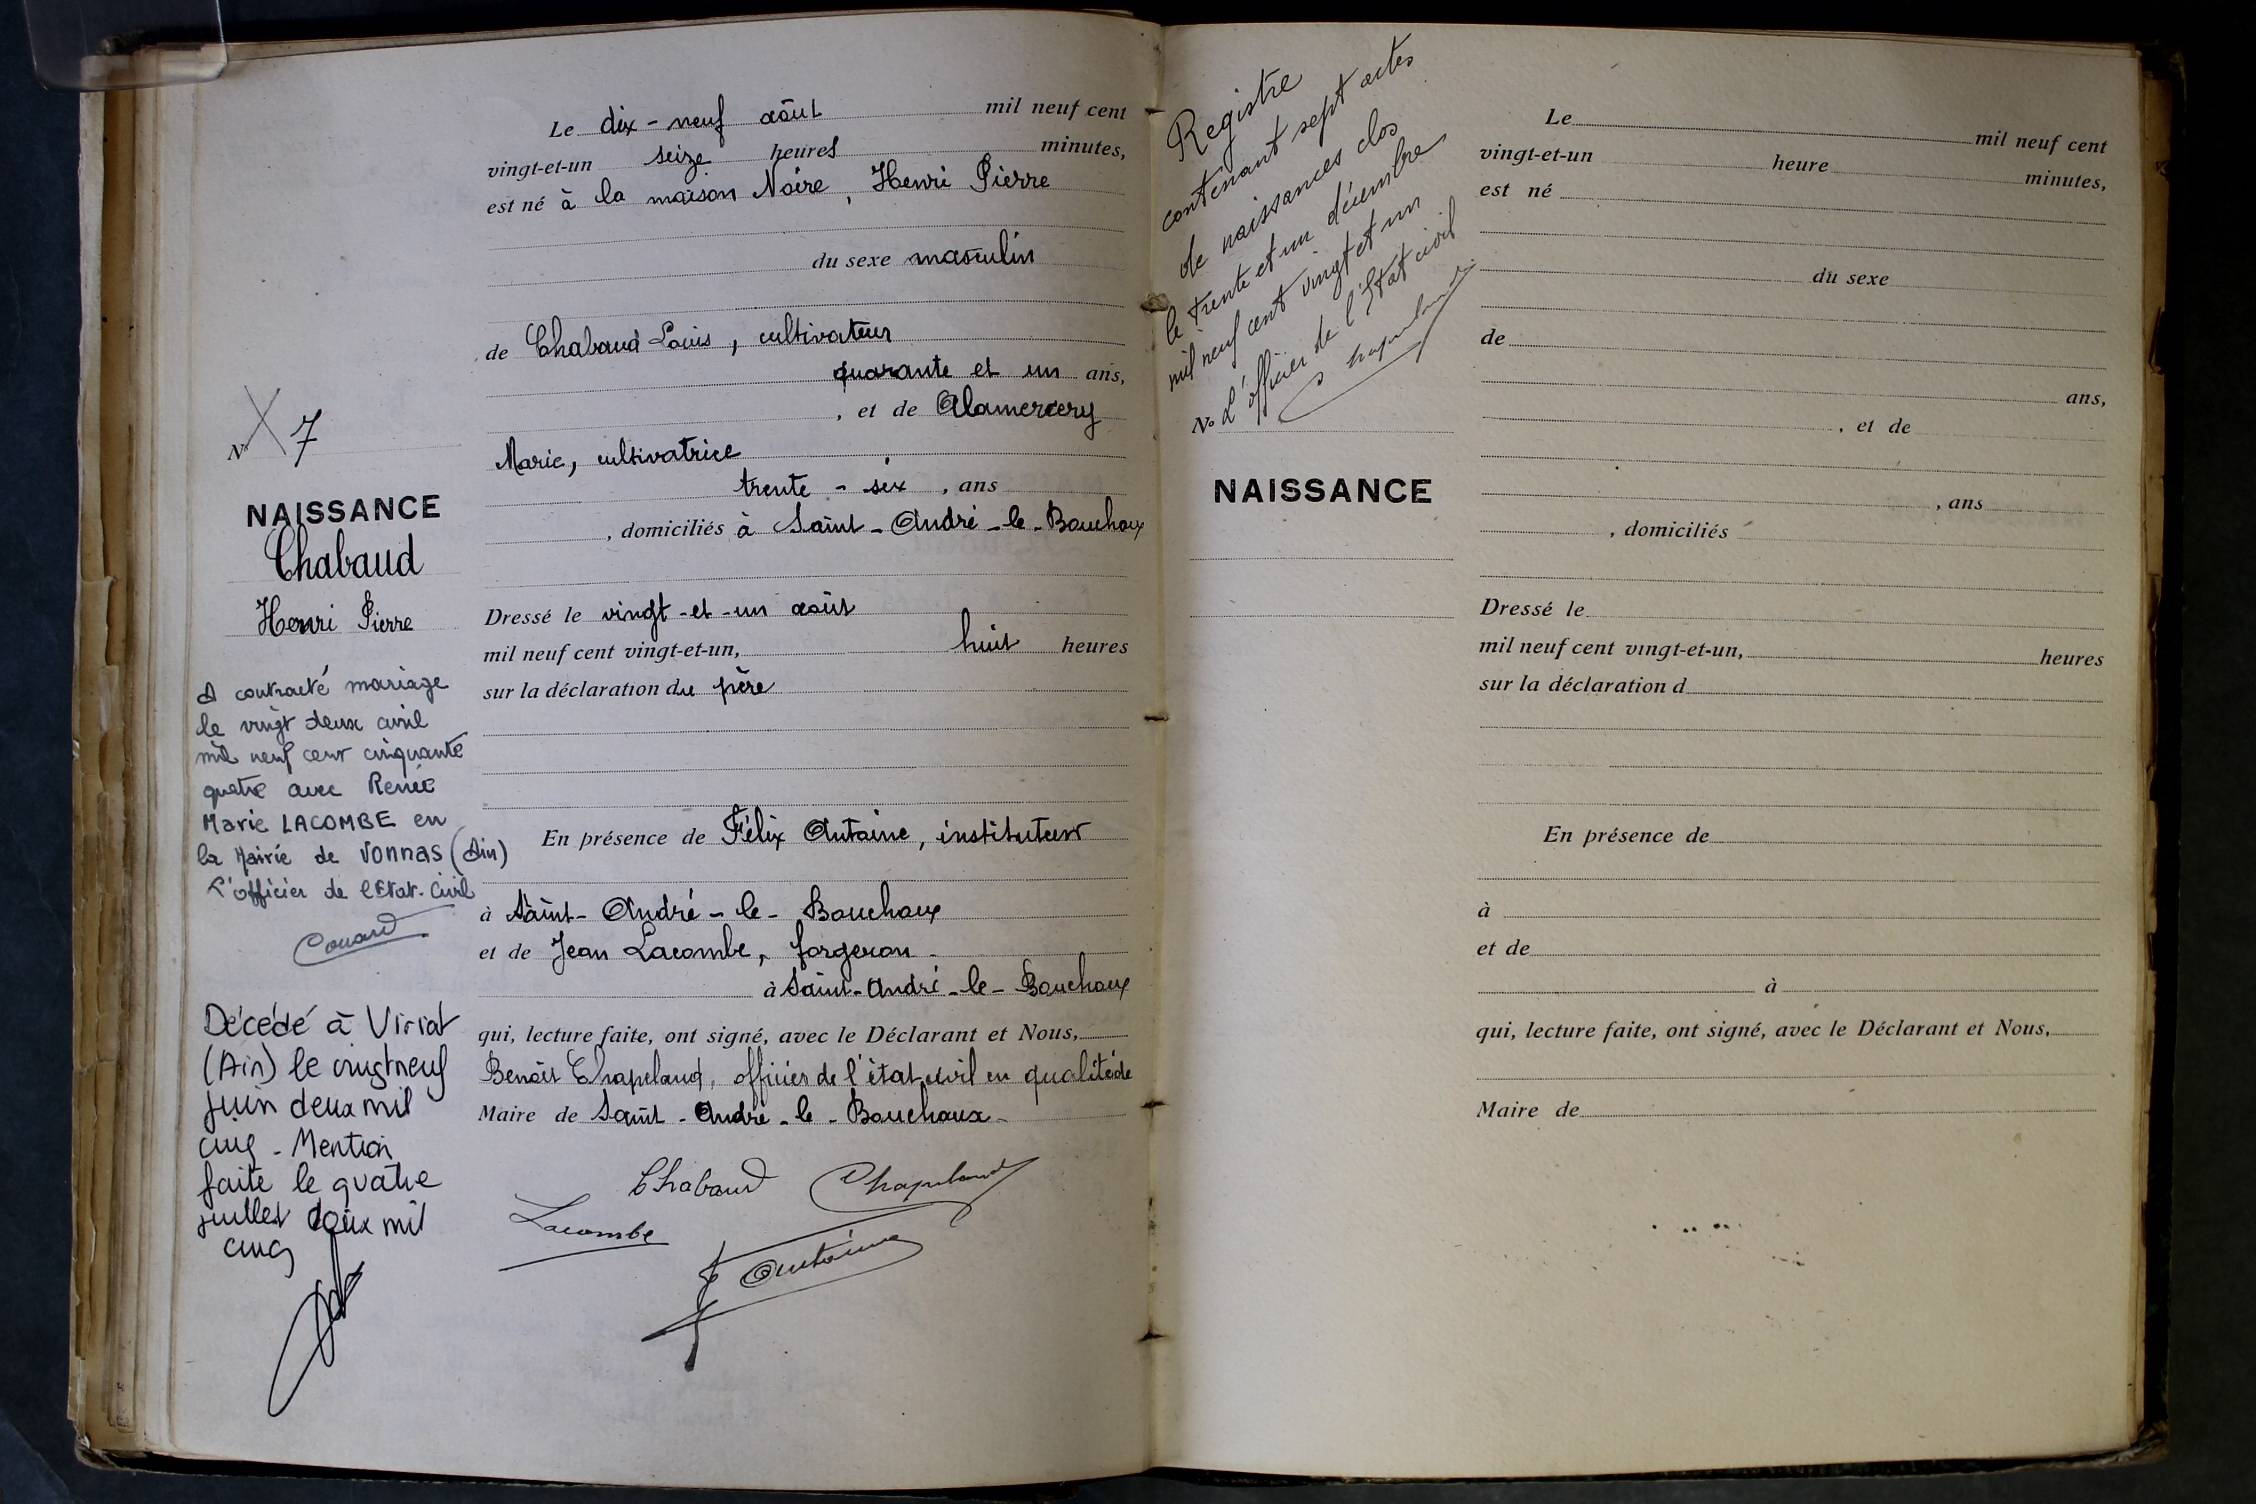 N° 7
NAISSANCE
Chabaud
Henri Pierre
A contracté mariage
le vingt deux avril
mil neuf cent cinquante
quatre avec Renée
Marie LACOMBE en
la Mairie de Vonnas (Ain)
L'officier de l'Etat-Civil
Couard
Décédé à Viriat
(Ain) le vingt neuf
juin deux mil
cinq - Mention
faite le quatre
juillet deux mil
cinq
Le dix-neuf août mil neuf cent
vingt-et-un seize heures minutes,
est né à la maison Noire, Henri Pierre
du sexe masculin
de Chabaud Louis, cultivateur
quarante et un ans,
, et de Alamercery
Marie, cultivatrice
trente-six , ans
, domiciliés à Saint-André-le-Bouchoux
Dressé le vingt-et-un août
mil neuf cent vingt-et-un, huit heures
sur la déclaration du père
En présence de Félix Antoine, instituteur
à Saint-André-le-Bouchoux
et de Jean Lacombe, forgeron
à Saint-André-le-Bouchoux
qui, lecture faite, ont signé, avec le Déclarant et Nous,
Benoit Chapeland, officier de l'état civil en qualité de
Maire de Saint-André-le-Bouchoux
Chabaud Chapeland
Lacombe
F Antoine
Registre
contenant sept actes
de naissances clos
le trente et un décembre
mil neuf cent vingt et un
L'officier de l'Etat civil
Chapeland
N°
NAISSANCE
Le mil neuf cent
vingt-et-un heure minutes,
est né
du sexe
de
ans,
, et de
, ans
, domiciliés
Dressé le
mil neuf cent vingt-et-un, heures
sur la déclaration d
En présence de
à
et de
à
qui, lecture faite, ont signé, avec le Déclarant et Nous,
Maire de